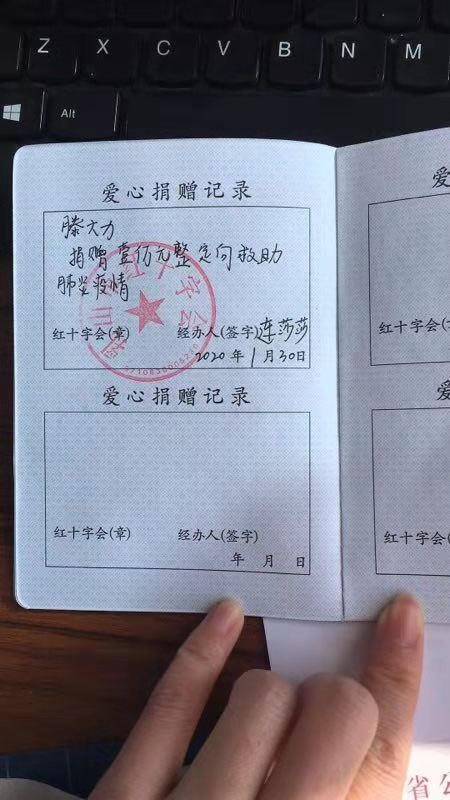 Z X C V B N M
Alt
爱心捐赠记录
滕大力
捐赠壹佰元整定向救助
肺炎疫情
红十字会(章)
经办人(签字)连莎莎
2020年1月30日
爱心捐赠记录
红十字会(章)
经办人(签字)
年 月 日
爱
红十字
爱
红十字
省公